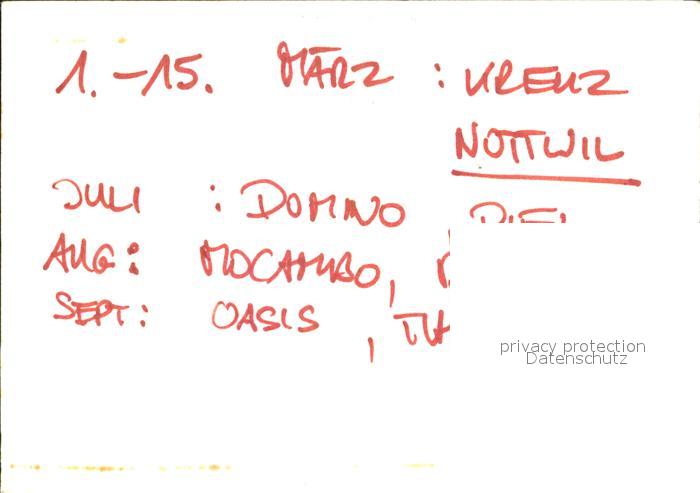 1. - 15. MÄRZ : KREUZ
NOTTWIL
JULI : DOMINO
AUG: MOCAMBO,
SEPT: OASIS,
privacy protection
Datenschutz